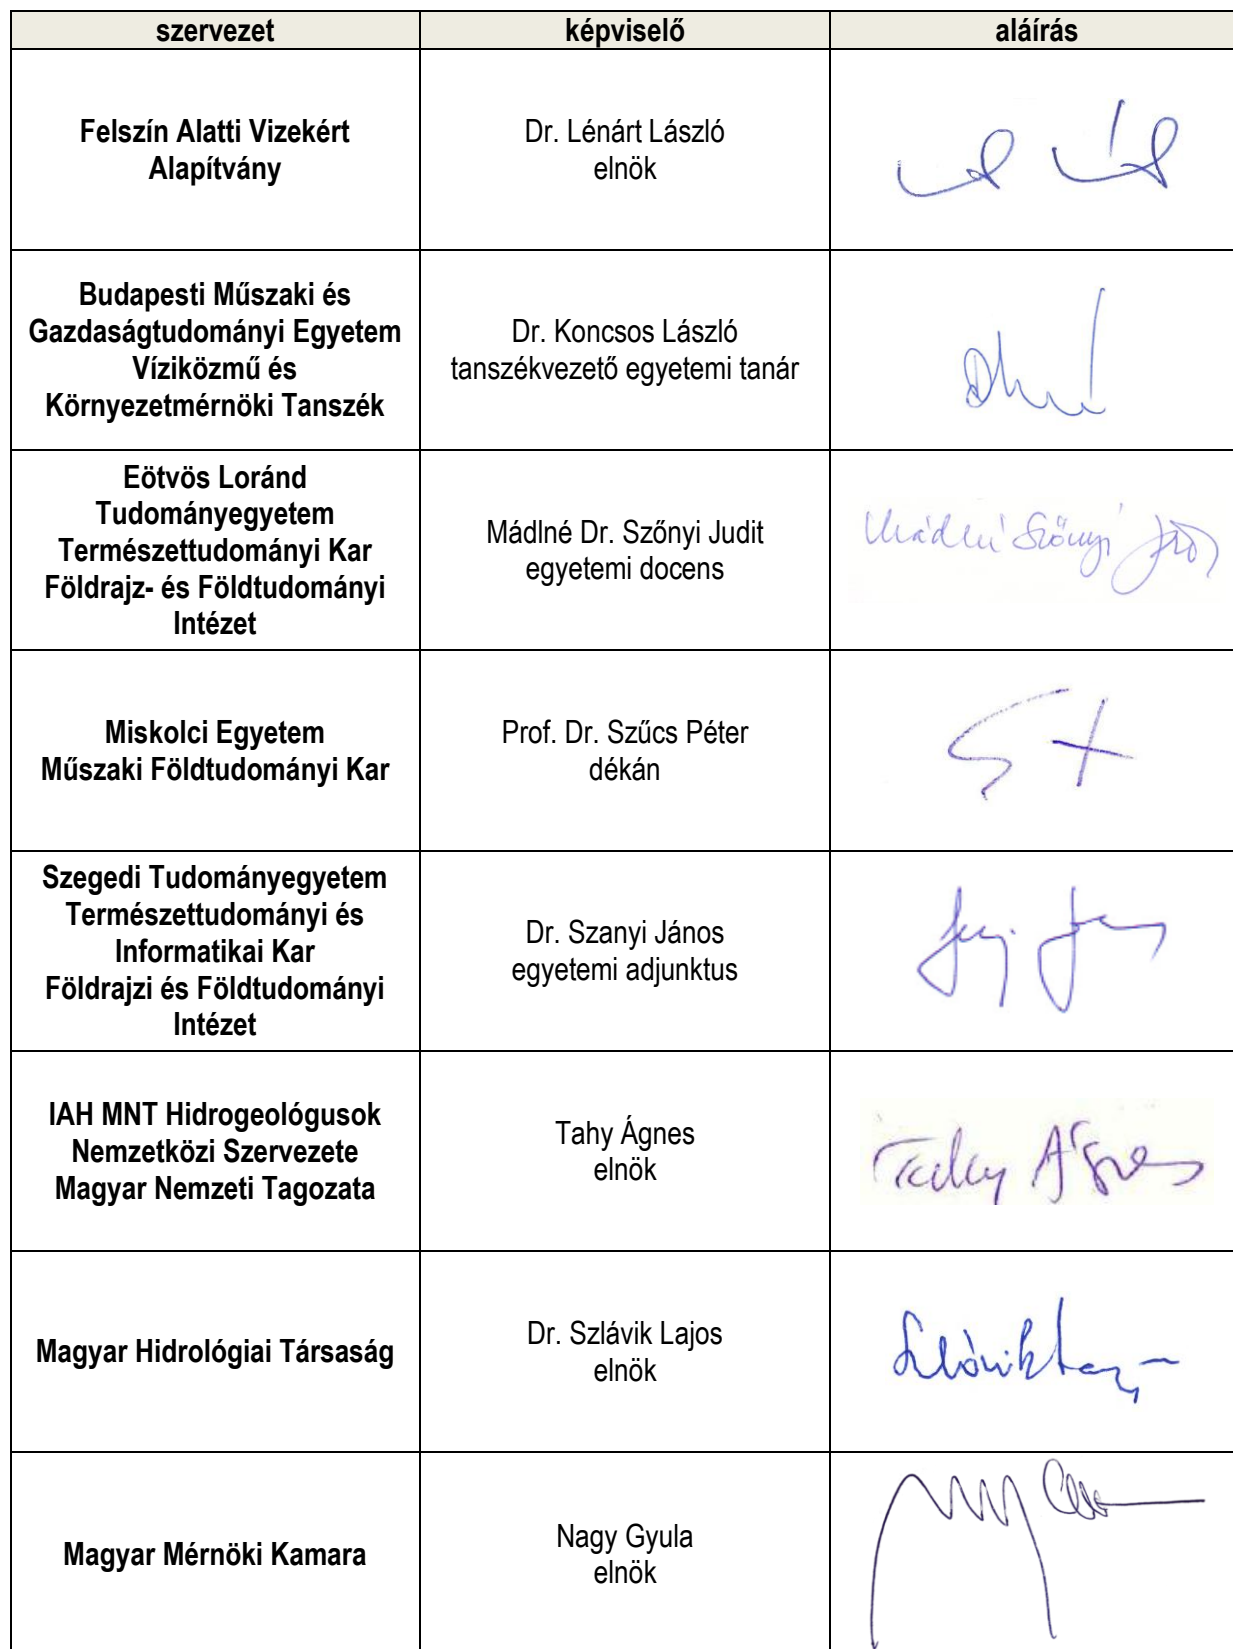 szervezet képviselő aláírás
Felszín Alatti Vizekért
Alapítvány
Dr. Lénárt László
elnök
Budapesti Műszaki és
Gazdaságtudományi Egyetem
Víziközmű és
Környezetmérnöki Tanszék
Dr. Koncsos László
tanszékvezető egyetemi tanár
Eötvös Loránd
Tudományegyetem
Természettudományi Kar
Földrajz- és Földtudományi
Intézet
Mádlné Dr. Szőnyi Judit
egyetemi docens
Mádlné Szőnyi
Miskolci Egyetem
Műszaki Földtudományi Kar
Prof. Dr. Szűcs Péter
dékán
Szegedi Tudományegyetem
Természettudományi és
Informatikai Kar
Földrajzi és Földtudományi
Intézet
Dr. Szanyi János
egyetemi adjunktus
IAH MNT Hidrogeológusok
Nemzetközi Szervezete
Magyar Nemzeti Tagozata
Tahy Ágnes
elnök
Tahy Ágnes
Magyar Hidrológiai Társaság
Dr. Szlávik Lajos
elnök
Szlávik
Magyar Mérnöki Kamara
Nagy Gyula
elnök